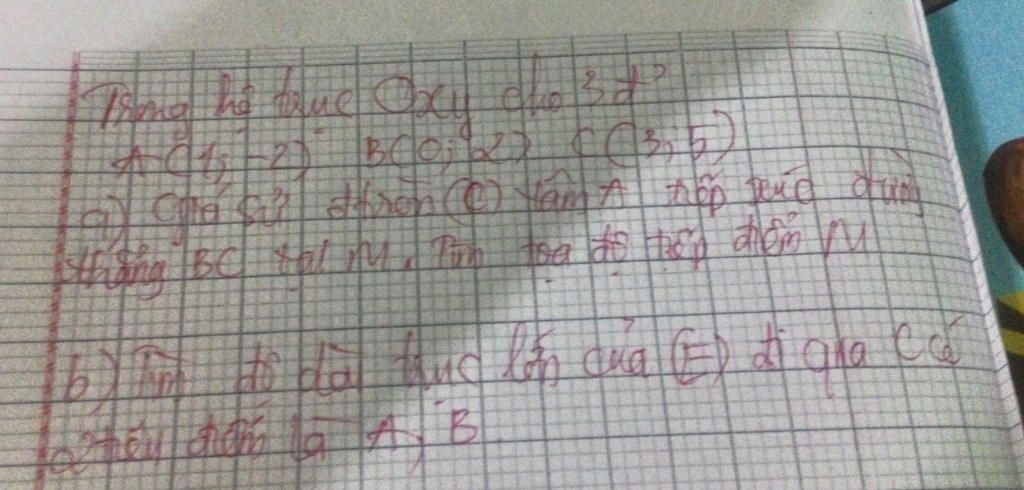 Trong hệ trục Oxy cho 3 đ²
A(1; -2) B(0; 2) C(3; 5)
a) Giả sử đtròn (C) tâm A tiếp xúc đường
thẳng BC tại M. Tìm tọa độ tiếp điểm M
b) Tính độ dài trục lớn của (E) đi qua C có
2 tiêu điểm là A, B